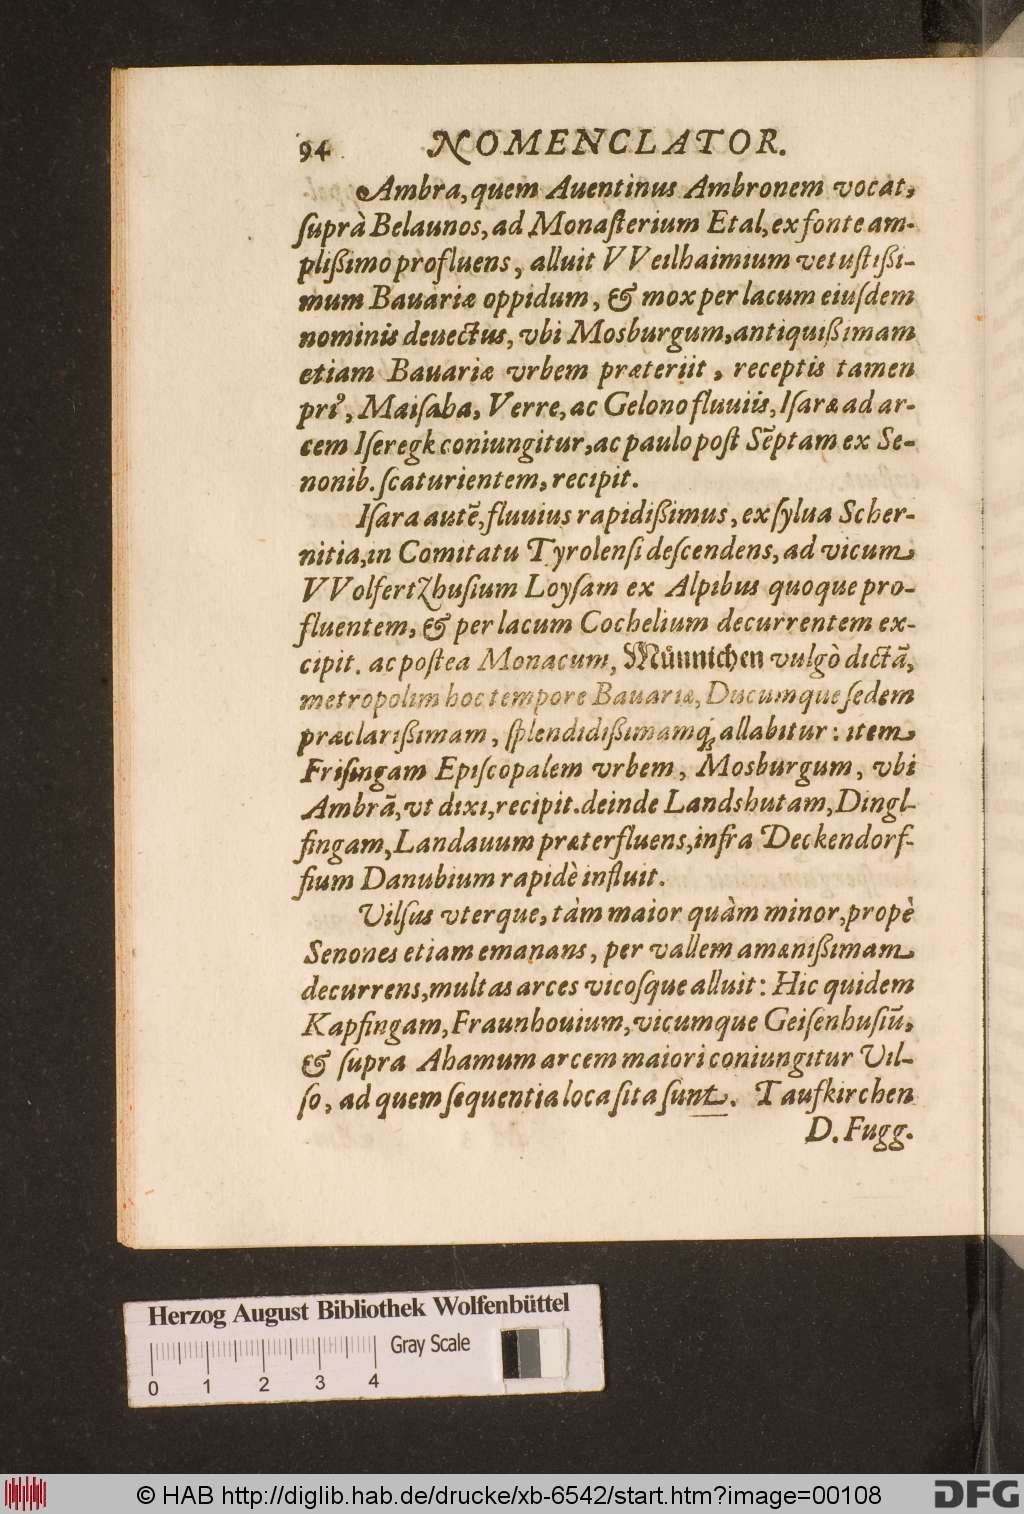 94 NOMENCLATOR.
Ambra, quem Auentinus Ambronem vocat,
ſuprà Belaunos, ad Monaſterium Etal, ex fonte am-
plißimo profluens, alluit VVeilhaimium vetuſtißi-
mum Bauariæ oppidum, & mox per lacum eiuſdem
nominis deuectus, vbi Mosburgum, antiquißimam
etiam Bauariæ vrbem præteriit, receptis tamen
priꝰ, Maiſaba, Verre, ac Gelono fluuiis, Iſaræ ad ar-
cem Iſeregk coniungitur, ac paulo poſt Sēptam ex Se-
nonib. ſcaturientem, recipit.
Iſara autē, fluuius rapidißimus, ex ſylua Scher-
nitia, in Comitatu Tyrolenſi deſcendens, ad vicum
VVolfertzhuſium Loyſam ex Alpibus quoque pro-
fluentem, & per lacum Cochelium decurrentem ex-
cipit. ac poſtea Monacum, Münnichen vulgò dictã,
metropolim hoc tempore Bauariæ, Ducumque ſedem
præclarißimam, ſplendidißimamq́ꝫ allabitur: item
Friſingam Epiſcopalem vrbem, Mosburgum, vbi
Ambrã, vt dixi, recipit. deinde Landshutam, Dingl-
fingam, Landauum præterfluens, infra Deckendorf-
fium Danubium rapidè influit.
Vilſus vterque, tàm maior quàm minor, propè
Senones etiam emanans, per vallem amænißimam
decurrens, multas arces vicoſque alluit: Hic quidem
Kapfingam, Fraunhouium, vicumque Geiſenhuſiū,
& ſupra Ahamum arcem maiori coniungitur Vil-
ſo, ad quem ſequentia loca ſita ſunt. Taufkirchen
D. Fugg.
Herzog August Bibliothek Wolfenbüttel
Gray Scale
0 1 2 3 4
© HAB http://diglib.hab.de/drucke/xb-6542/start.htm?image=00108
DFG